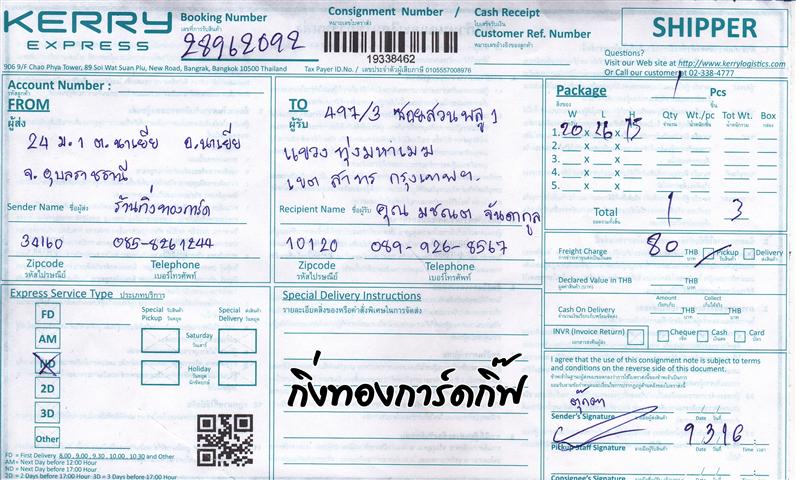 KERRY
EXPRESS
Booking Number
28962092
Consignment Number /
Cash Receipt
19338462
Customer Ref. Number
SHIPPER
906 9/F Chao Phya Tower, 89 Soi Wat Suan Plu, New Road, Bangrak, Bangkok 10500 Thailand
Tax Payer ID.No. / เลขประจำตัวผู้เสียภาษี 0105557008976
Questions?
Visit our Web site at http://www.kerrylogistics.com
Or Call our customer at 02-338-4777
Account Number :
FROM
ผู้ส่ง
24 ม.1 ต.นาเยีย อ.นาเยีย
จ.อุบลราชธานี
Sender Name ชื่อผู้ส่ง ร้านกิ่งทองการ์ด
34160 085-8261244
Zipcode Telephone
รหัสไปรษณีย์ เบอร์โทรศัพท์
TO
ผู้รับ
497/3 ซอยสวนพลู 1
แขวง ทุ่งมหาเมฆ
เขต สาทร กรุงเทพฯ.
Recipient Name ชื่อผู้รับ คุณ มชณต จันตากูล
10120 089-926-8567
Zipcode Telephone
รหัสไปรษณีย์ เบอร์โทรศัพท์
Package 1 Pcs
W L H Qty Wt./pc Tot Wt. Box
1. 20 x 26 x 15
2. x x
3. x x
4. x x
5. x x
Total 1 3
Freight Charge 80 THB Pickup Delivery
Declared Value in THB THB
Amount Collect
Cash On Delivery THB THB
INVR (Invoice Return) Cheque Cash Card
Express Service Type ประเภทบริการ
Special Pickup
Special Delivery
FD
AM
Saturday
ND
Holiday
2D
3D
Other
FD = First Delivery 8.00 , 9.00 , 9.30 , 10.00 , 10.30 and Other
AM= Next Day before 12:00 Hour
ND = Next Day before 17:00 Hour
2D = 2 Days before 17:00 Hour 3D = 3 Days before 17:00 Hour
Special Delivery Instructions
รายละเอียดสิ่งของหรือคำสั่งพิเศษในการจัดส่ง
กิ่งทองการ์ดกิ๊ฟ
I agree that the use of this consignment note is subject to terms
and conditions on the reverse side of this document.
ตุ๊กตา
Sender's Signature
Date
9 3 16
Pickup Staff Signature
Date
Time
Consignee's Signature